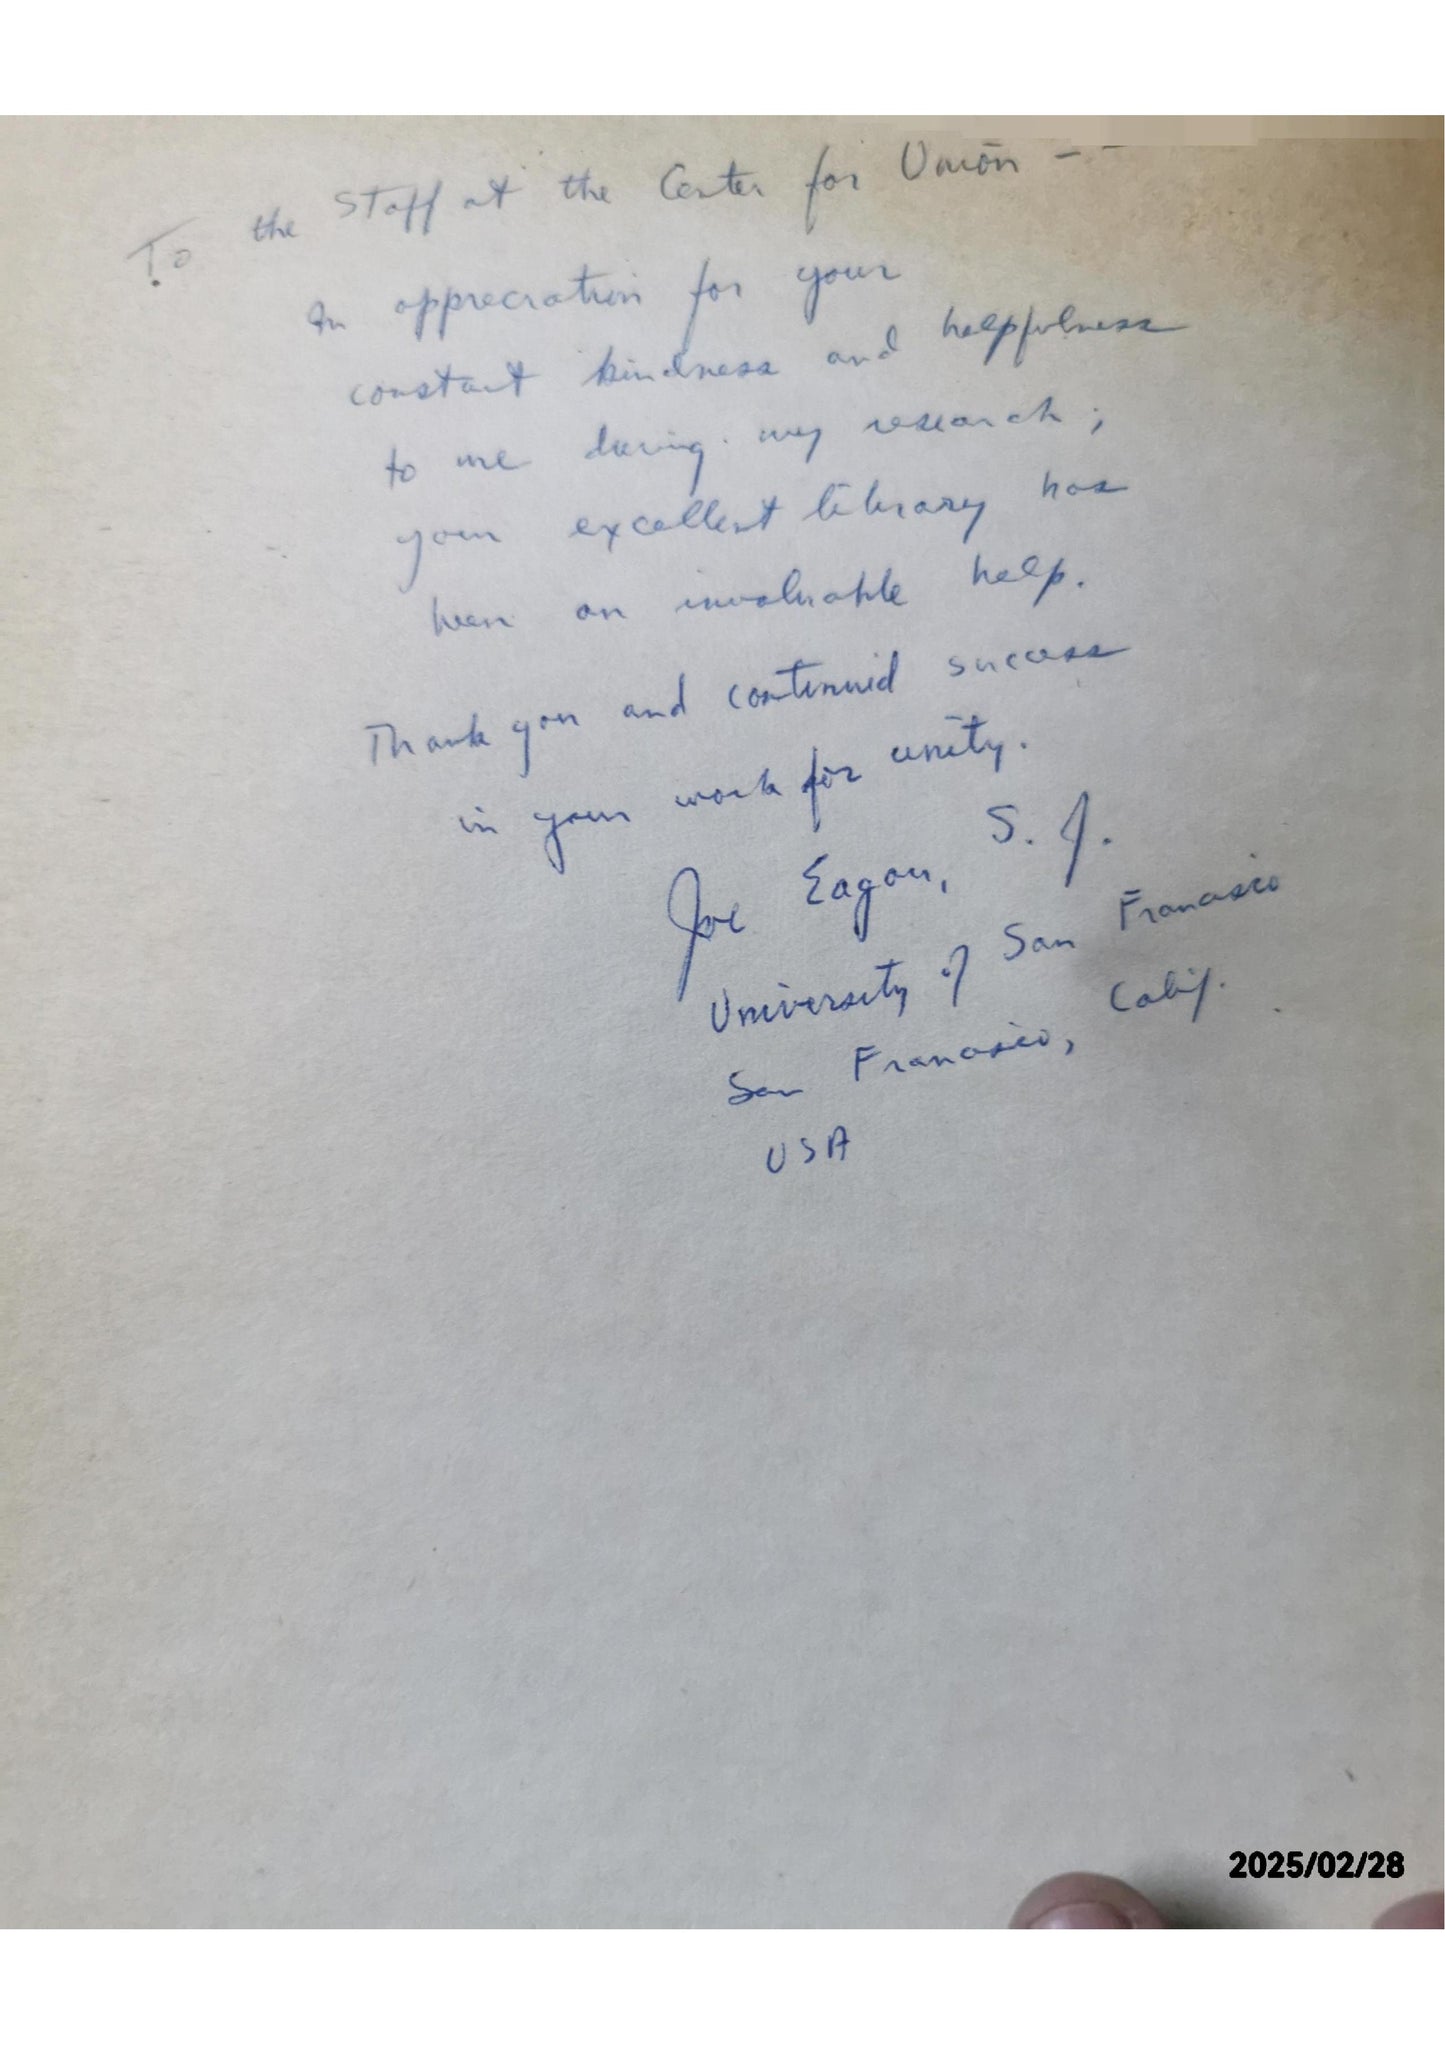 To the Staff at the Center for Union - -
In appreciation for your
constant kindness and helpfulness
to me during my research;
your excellent library has
been an invaluable help.
Thank you and continued success
in your work for unity.
Joe Eagan, S. J.
University of San Francisco
San Francisco, Calif.
USA
2025/02/28